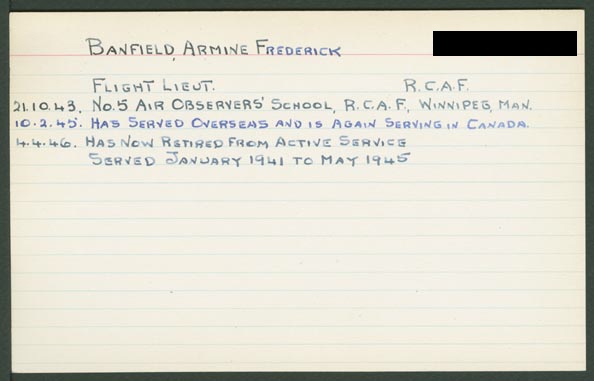 BANFIELD, ARMINE FREDERICK
FLIGHT LIEUT. R.C.A.F.
21.10.43. NO.5 AIR OBSERVERS' SCHOOL, R.C.A.F., WINNIPEG, MAN.
10.2.45. HAS SERVED OVERSEAS AND IS AGAIN SERVING IN CANADA.
4.4.46. HAS NOW RETIRED FROM ACTIVE SERVICE
SERVED JANUARY 1941 TO MAY 1945